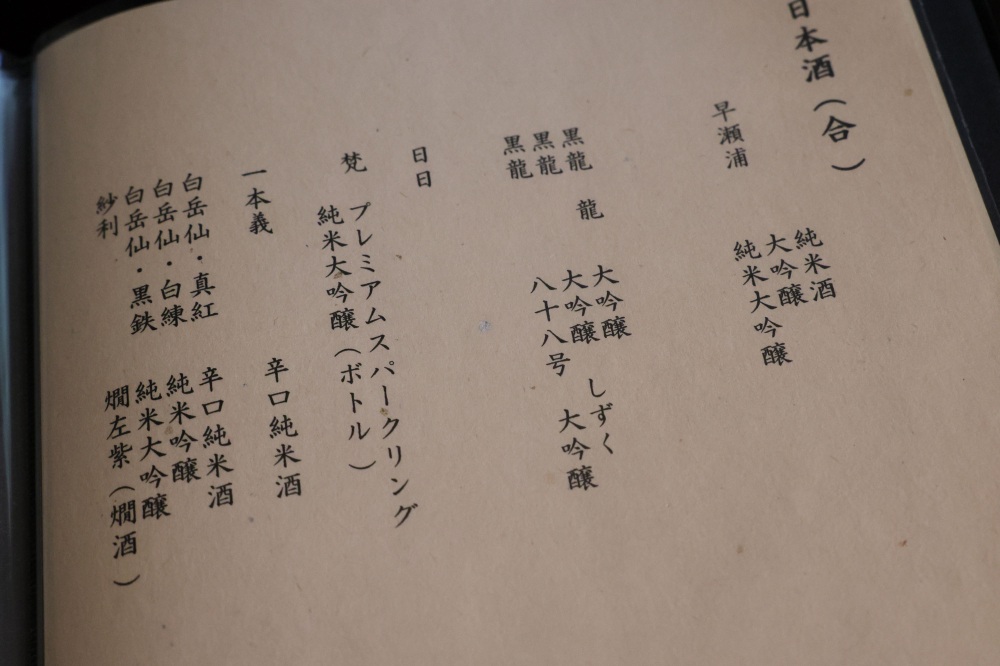 日本酒（合）
早瀬浦　純米酒
大吟醸
純米大吟醸
黒龍　龍　大吟醸
黒龍　大吟醸　しずく
黒龍　八十八号　大吟醸
日日
梵　プレミアムスパークリング
純米大吟醸（ボトル）
一本義　辛口純米酒
白岳仙・真紅　辛口純米酒
白岳仙・白練　純米吟醸
白岳仙・黒鉄　純米大吟醸
紗利　燗左紫（燗酒）